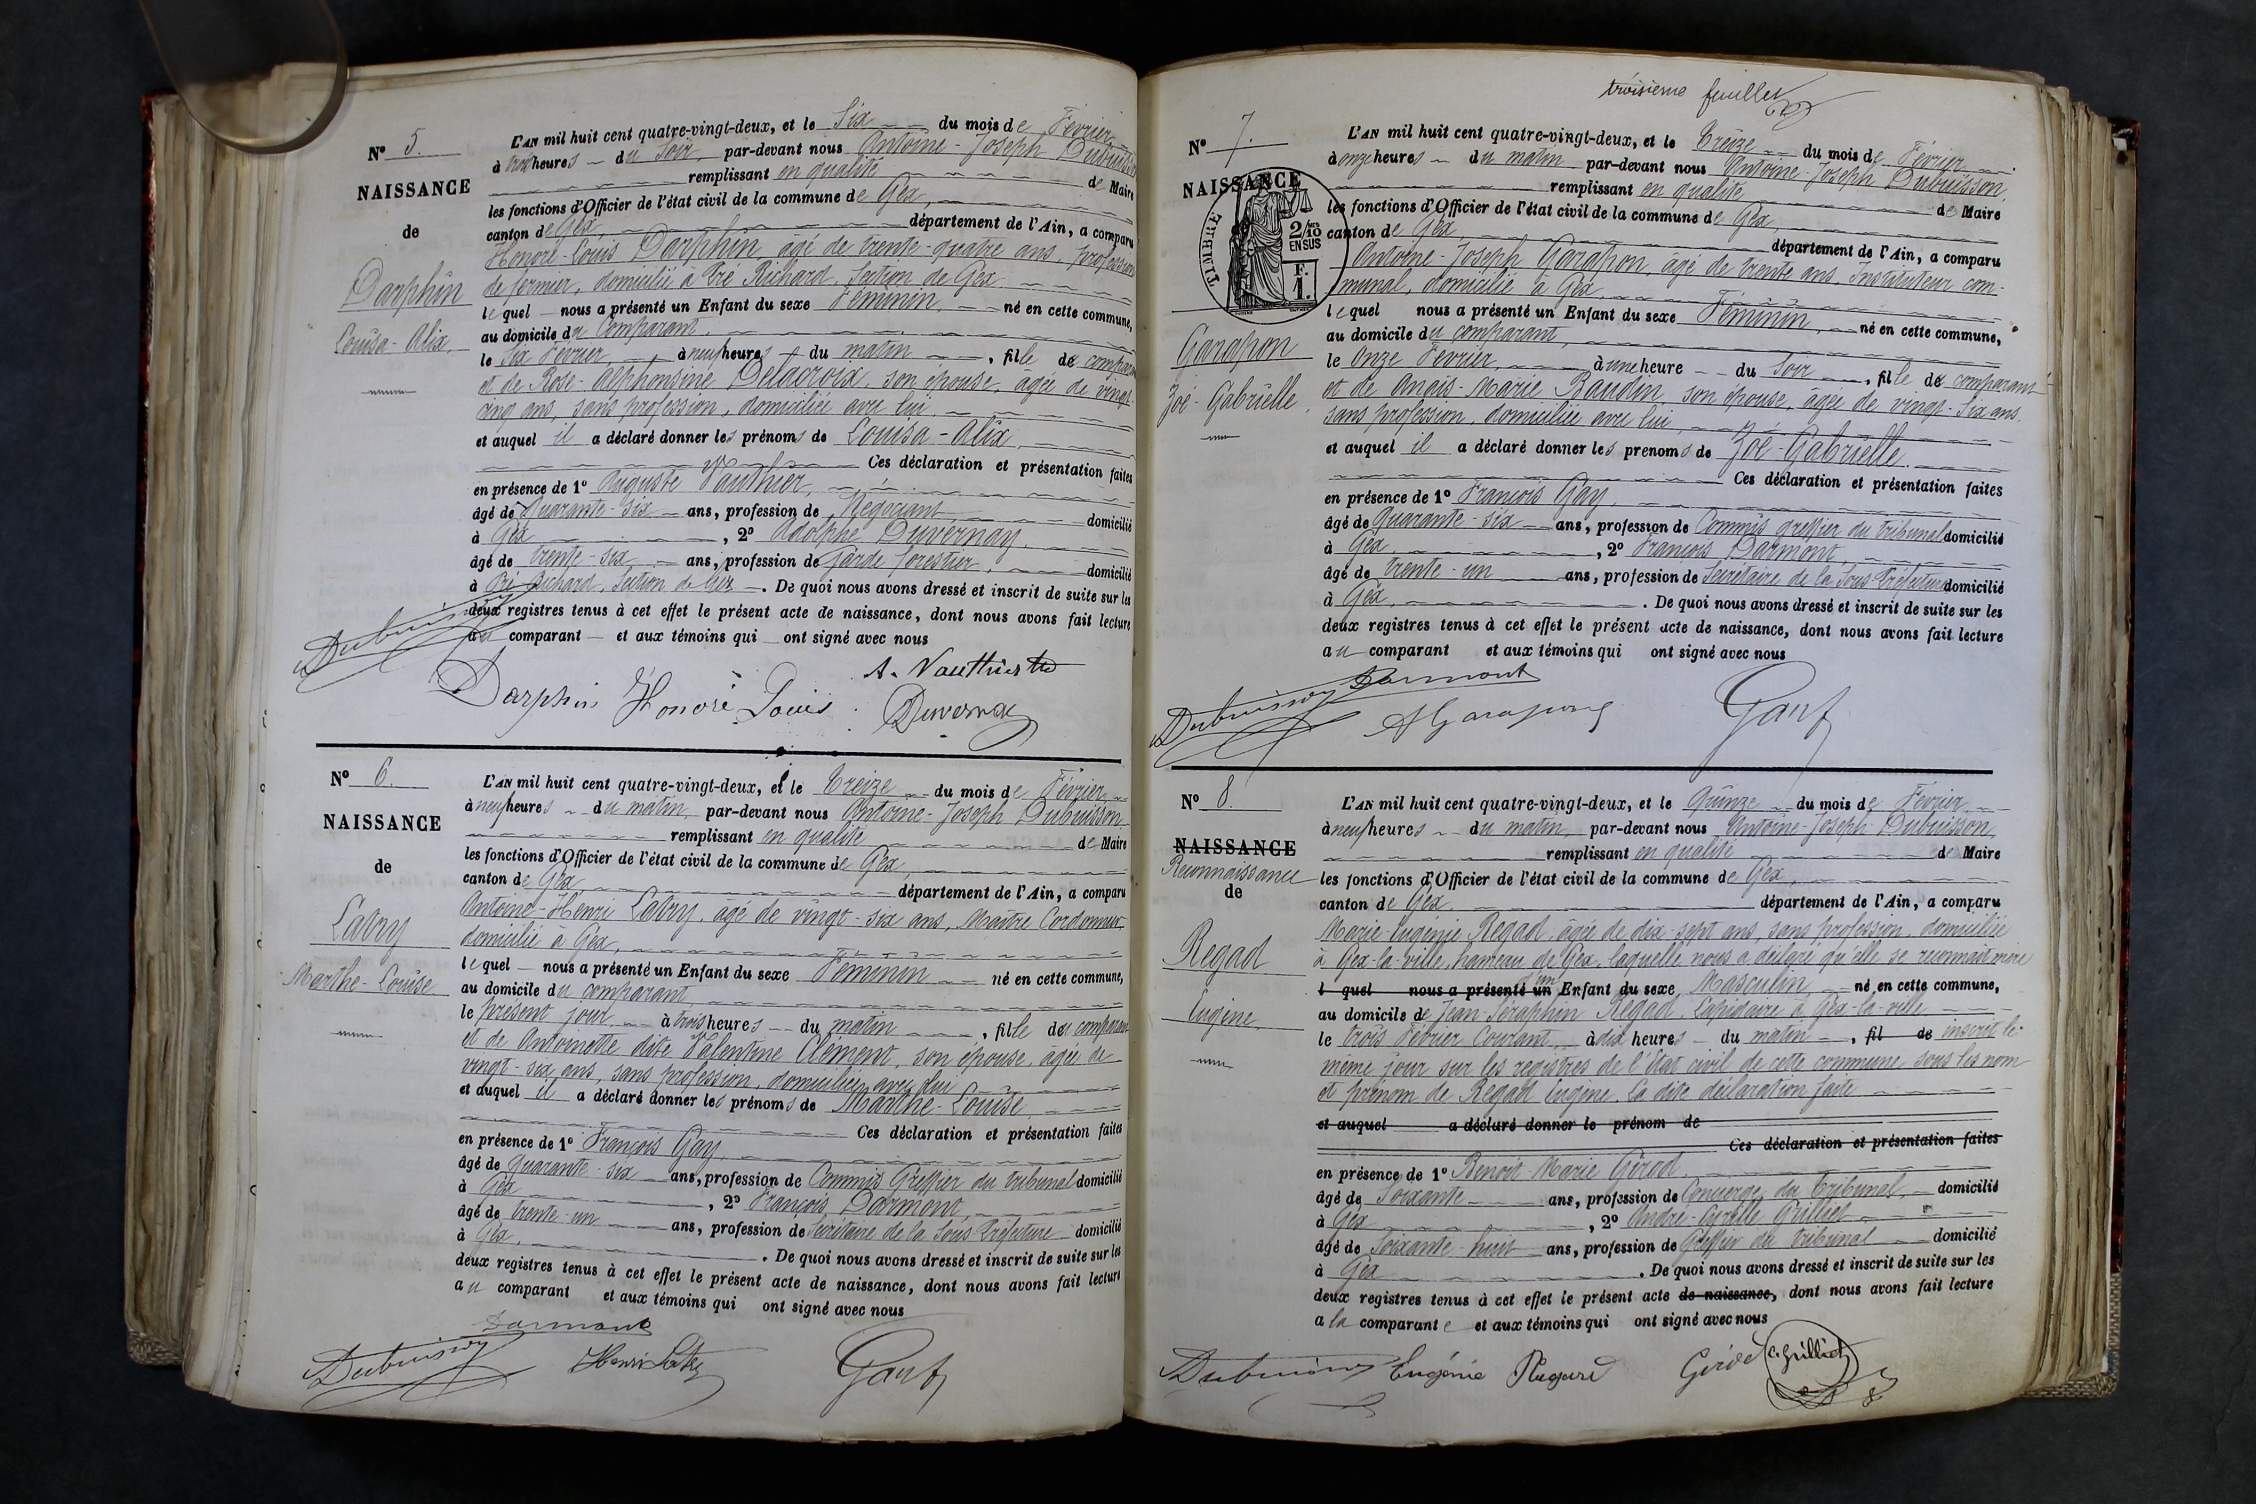 N° 5.
NAISSANCE
de
Darphin
Louisa-Alix
L'AN mil huit cent quatre-vingt-deux, et le Six du mois de Février
à trois heures du Soir par-devant nous Antoine-Joseph Dubuisson
remplissant en qualité de Maire
les fonctions d'Officier de l'état civil de la commune de Gex,
canton de Gex, département de l'Ain, a comparu
Honoré-Louis Darphin âgé de trente-quatre ans, profession
de fermier, domicilié à Pré Richard, Section de Gex
lequel nous a présenté un Enfant du sexe Féminin, né en cette commune,
au domicile du Comparant,
le Six Février à neuf heures du matin, fille de comparant
et de Rose-Alphonsine Delacroix, son épouse, âgée de vingt-
cinq ans, sans profession, domiciliée avec lui
et auquel il a déclaré donner les prénoms de Louisa-Alix,
Ces déclaration et présentation faites
en présence de 1° Auguste Vauthier,
âgé de Quarante-six ans, profession de Négociant domicilié
à Gex, 2° Adolphe Duvernay,
âgé de trente-six ans, profession de garde forestier, domicilié
à Pré Richard, Section de Gex. De quoi nous avons dressé et inscrit de suite sur les
deux registres tenus à cet effet le présent acte de naissance, dont nous avons fait lecture
au comparant et aux témoins qui ont signé avec nous
Dubuisson
A. Vauthier
Darphin Honoré Louis Duvernay
N° 6.
NAISSANCE
de
Latry
Marthe-Louise
L'AN mil huit cent quatre-vingt-deux, et le Treize du mois de Février
à neuf heures du matin, par-devant nous Antoine-Joseph Dubuisson
remplissant en qualité de Maire
les fonctions d'Officier de l'état civil de la commune de Gex,
canton de Gex département de l'Ain, a comparu
Antoine-Henri Latry, âgé de vingt-six ans, Maître Cordonnier,
domicilié à Gex,
lequel nous a présenté un Enfant du sexe Féminin né en cette commune,
au domicile du comparant,
le présent jour à trois heures du matin, fille du comparant
et de Antoinette dite Valentine Clément, son épouse, âgée de
vingt-six ans, sans profession, domiciliée avec lui
et auquel il a déclaré donner les prénoms de Marthe-Louise,
Ces déclaration et présentation faites
en présence de 1° François Gay,
âgé de quarante-six ans, profession de Commis Greffier du tribunal domicilié
à Gex, 2° François Darmont,
âgé de trente-un ans, profession de Secrétaire de la Sous Préfecture domicilié
à Gex, . De quoi nous avons dressé et inscrit de suite sur les
deux registres tenus à cet effet le présent acte de naissance, dont nous avons fait lecture
au comparant et aux témoins qui ont signé avec nous
Darmont
Dubuisson Henri Latry Gay
troisième feuillet
N° 7.
NAISSANCE
TIMBRE
2/10
EN SUS
F.
1.
Garapon
Zoé-Gabrielle
L'AN mil huit cent quatre-vingt-deux, et le Treize du mois de Février
à onze heures du matin par-devant nous Antoine-Joseph Dubuisson,
remplissant en qualité de Maire
les fonctions d'Officier de l'état civil de la commune de Gex,
canton de Gex, département de l'Ain, a comparu
Antoine-Joseph Garapon, âgé de trente ans, Instituteur com-
munal, domicilié à Gex,
lequel nous a présenté un Enfant du sexe Féminin, né en cette commune,
au domicile du comparant,
le Onze Février, à une heure du Soir, fille de comparant
et de Anaïs-Marie Baudin, son épouse, âgée de vingt-six ans,
sans profession, domiciliée avec lui,
et auquel il a déclaré donner les prénoms de Zoé-Gabrielle.
Ces déclaration et présentation faites
en présence de 1° François Gay,
âgé de quarante-six ans, profession de Commis greffier du tribunal domicilié
à Gex, 2° François Darmont,
âgé de trente-un ans, profession de Secrétaire de la Sous Préfecture domicilié
à Gex, . De quoi nous avons dressé et inscrit de suite sur les
deux registres tenus à cet effet le présent acte de naissance, dont nous avons fait lecture
au comparant et aux témoins qui ont signé avec nous
Dubuisson Darmont
A Garapon Gay
N° 8.
NAISSANCE
Reconnaissance
de
Regad
Eugène
L'AN mil huit cent quatre-vingt-deux, et le Quinze du mois de Février
à neuf heures du matin, par-devant nous Antoine-Joseph Dubuisson,
remplissant en qualité de Maire
les fonctions d'Officier de l'état civil de la commune de Gex,
canton de Gex, département de l'Ain, a comparu
Marie-Eugénie Regad, âgée de dix-sept ans, sans profession, domiciliée
à Gex-la-ville, hameau de Gex, laquelle nous a déclaré qu'elle se reconnait mère
l quel nous a présenté un d'un Enfant du sexe Masculin, né en cette commune,
au domicile de Jean Séraphin Regad, Lapidaire à Gex-la-ville
le trois Février Courant, à dix heures du matin, fil de inscrit le
même jour sur les registres de l'État civil de cette commune sous les nom
et prénom de Regad Eugène. La dite déclaration faite
et auquel a déclaré donner le prénom de
Ces déclaration et présentation faites
en présence de 1° Benoit Marie Girod,
âgé de Soixante ans, profession de Concierge du tribunal, domicilié
à Gex, 2° André-Cyrille Grilliet
âgé de Soixante-huit ans, profession de Greffier du tribunal domicilié
à Gex. De quoi nous avons dressé et inscrit de suite sur les
deux registres tenus à cet effet le présent acte de naissance, dont nous avons fait lecture
a la comparante et aux témoins qui ont signé avec nous
Dubuisson Eugénie Regad Girod C. Grilliet